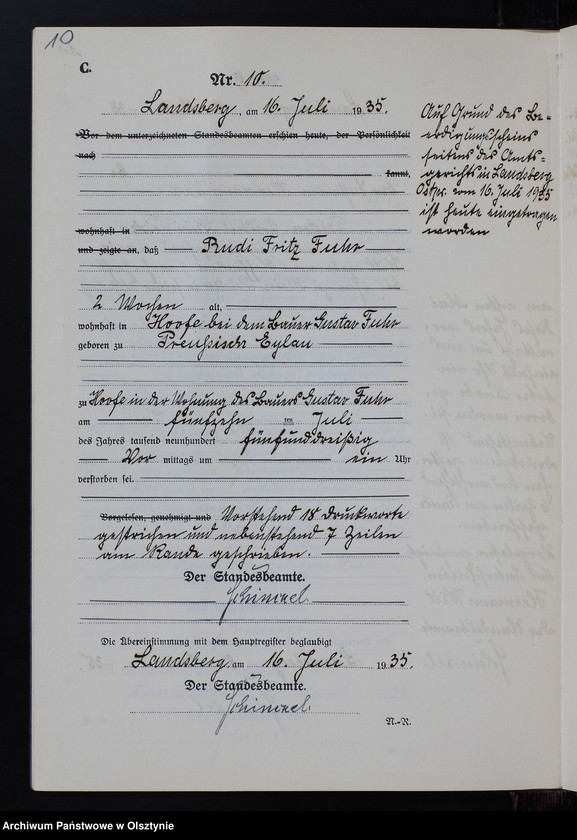 10
C.
Nr. 10.
Landsberg, am 16. Juli 1935.
Vor dem unterzeichneten Standesbeamten erschien heute, der Persönlichkeit
nach
kannt,
wohnhaft in
und zeigte an, daß Rudi Fritz Fuhr
2 Wochen alt,
wohnhaft in Hoofe bei dem Bauer Gustav Fuhr
geboren zu Preußisch Eylau
zu Hoofe in der Wohnung des Bauers Gustav Fuhr
am fünfzehn ten Juli
des Jahres tausend neunhundert fünfunddreißig
Vor mittags um ein Uhr
verstorben sei.
Vorgelesen, genehmigt und Vorstehend 18 Druckworte
gestrichen und nebenstehend 7 Zeilen
am Rande geschrieben.
Der Standesbeamte.
Schimmel.
Die Übereinstimmung mit dem Hauptregister beglaubigt
Landsberg, am 16. Juli 1935.
Der Standesbeamte.
Schimmel.
N.-R.
Auf Grund des Be-
erdigungsscheins
seitens des Amts-
gerichts in Landsberg
Ostpr. vom 16. Juli 1935
ist heute eingetragen
worden
Archiwum Państwowe w Olsztynie